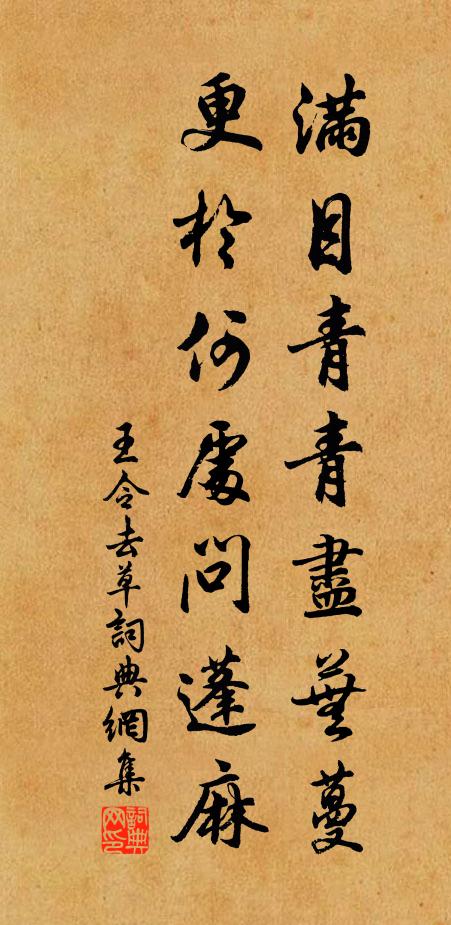 滿目青青盡蕪蔓
更於何處問蓬麻
王令去草詞典網集
詞典網印